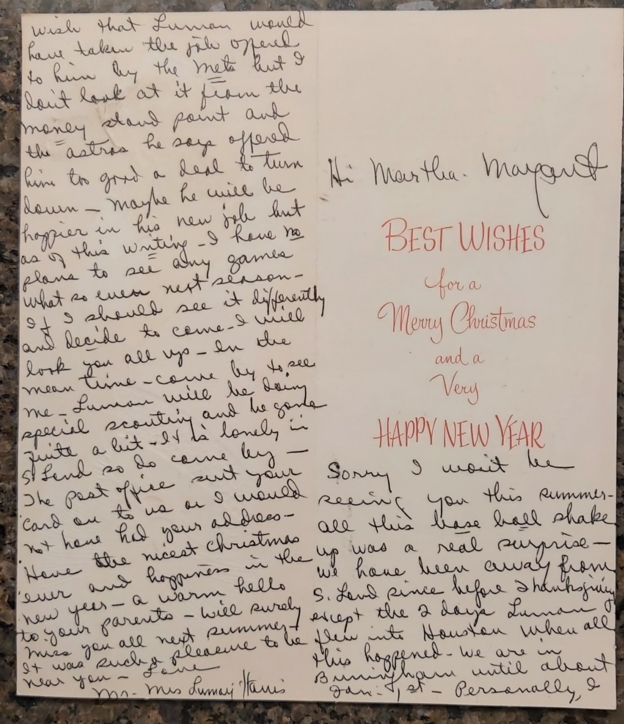 Hi Martha. Margaret
BEST WISHES
for a
Merry Christmas
and a
Very
HAPPY NEW YEAR
Sorry I won't be
seeing you this summer-
all this base ball shake
up was a real surprise—
we have been away from
S. Land since before Thanksgiving
except the 2 days Luman
flew into Houston when all
this happened - we are in
Birmingham until about
Jan. 1st - Personally, I
wish that Luman would
have taken the job offered
to him by the Mets but I
don't look at it from the
money stand point and
the astros he says offered
him too good a deal to turn
down — maybe he will be
happier in his new job but
as of this writing - I have no
plans to see any games
what so ever next season -
If I should see it differently
and decide to come - I will
look you all up - In the
mean time - come by to see
me - Luman will be doing
special scouting and be gone
quite a bit - It is lonely in
S. Land so do come by —
The post office sent your
card on to us or I would
not have had your address -
Have the nicest Christmas
ever and happiness in the
new year - a warm hello
to your parents - will surely
miss you all next summer -
It was such a pleasure to be
near you - Love
Mr - Mrs Luman Harris